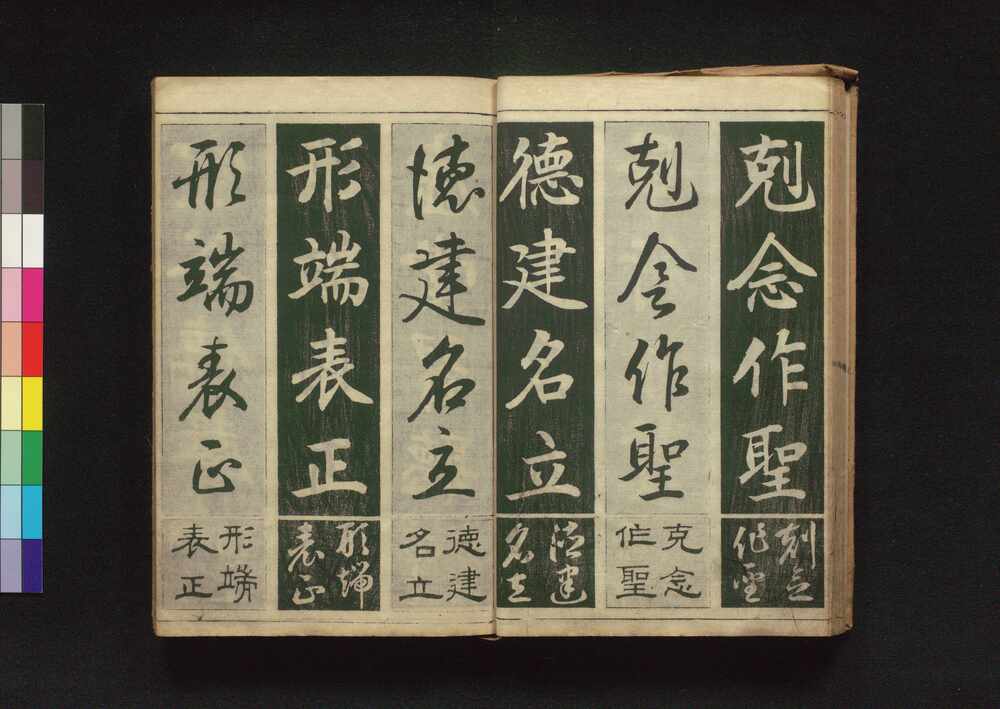 剋念作聖
剋念
作聖
剋念作聖
克念
作聖
德建名立
德建
名立
德建名立
德建
名立
形端表正
形端
表正
形端表正
形端
表正